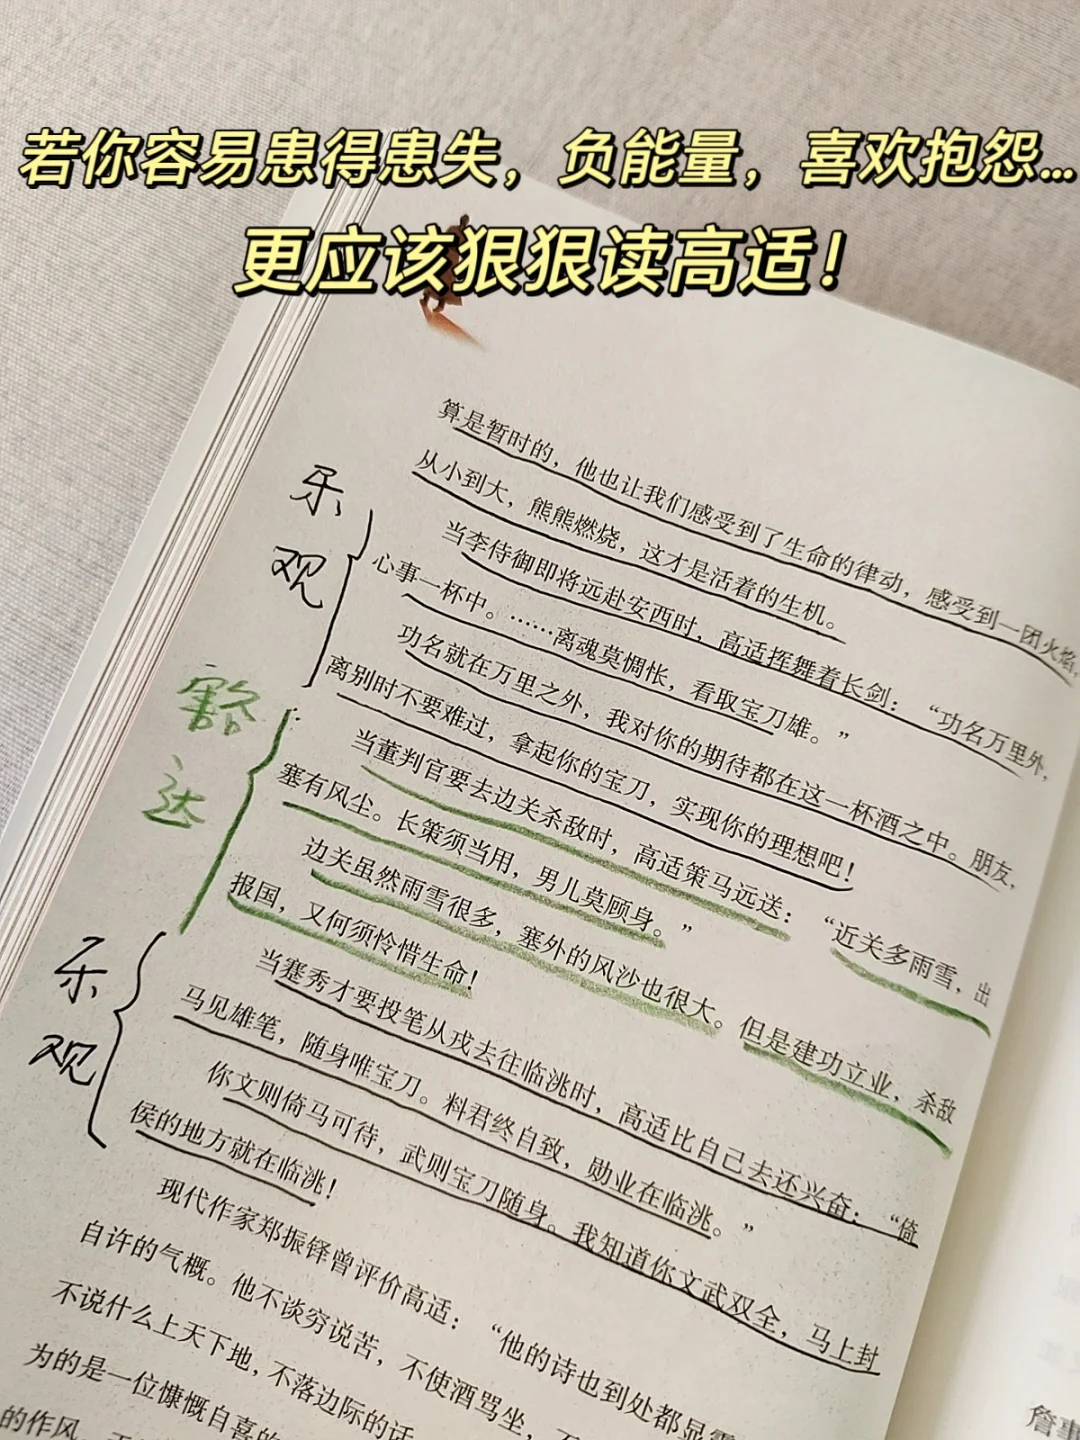 若你容易患得患失，负能量，喜欢抱怨...
更应该狠狠读高适！
算是暂时的，他也让我们感受到了生命的律动，感受到一团火焰，
从小到大，熊熊燃烧，这才是活着的生机。
当李侍御即将远赴安西时，高适挥舞着长剑：“功名万里外，
心事一杯中。……离魂莫惆怅，看取宝刀雄。”
功名就在万里之外，我对你的期待都在这一杯酒之中。朋友，
离别时不要难过，拿起你的宝刀，实现你的理想吧！
当董判官要去边关杀敌时，高适策马远送：“近关多雨雪，出
塞有风尘。长策须当用，男儿莫顾身。”
边关虽然雨雪很多，塞外的风沙也很大。但是建功立业，杀敌
报国，又何须怜惜生命！
当蹇秀才要投笔从戎去往临洮时，高适比自己去还兴奋：“倚
马见雄笔，随身唯宝刀。料君终自致，勋业在临洮。”
你文则倚马可待，武则宝刀随身。我知道你文武双全，马上封
侯的地方就在临洮！
现代作家郑振铎曾评价高适：“他的诗也到处都显
自许的气概。他不谈穷说苦，不使酒骂坐，不
不说什么上天下地，不落边际的话
为的是一位慷慨自喜的
的作风
乐
观
豁
达
乐
观
詹事